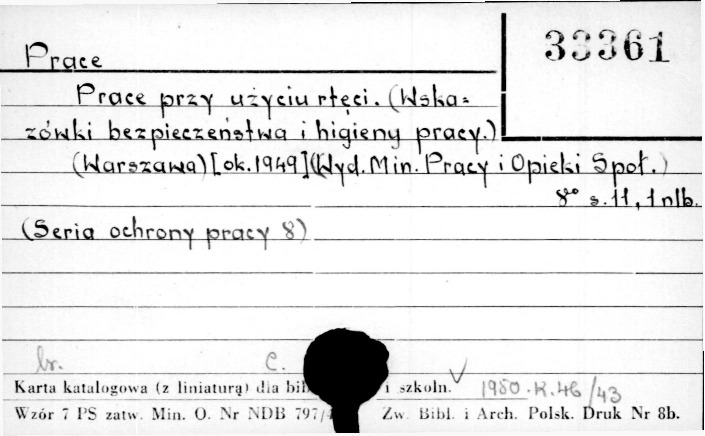 33361
Prace
Prace przy użyciu rtęci. (Wska=
zówki bezpieczeństwa i higieny pracy.)
(Warszawa) [ok. 1949] (Wyd. Min. Pracy i Opieki Społ.)
8° s. 11, 1 nlb.
(Seria ochrony pracy 8)
br. C.
Karta katalogowa (z liniaturą) dla i szkoln. 1950.K.46/43
Wzór 7 PS zatw. Min. O. Nr NDB 797/ Zw. Bibl. i Arch. Polsk. Druk Nr 8b.